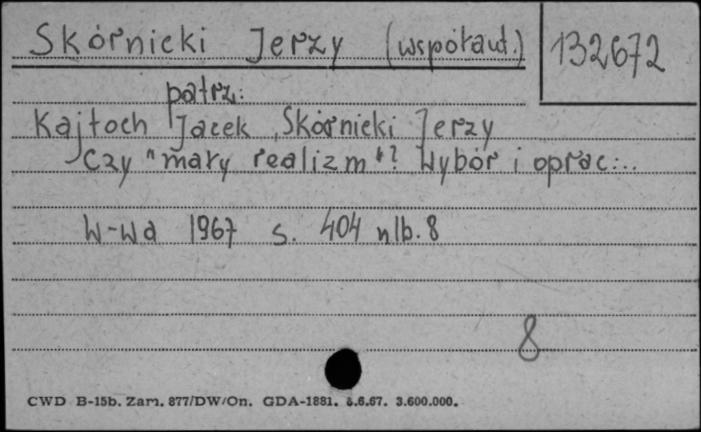 Skórnicki Jerzy (współaut.) 132672
patrz:
Kajtoch Jacek, Skórnicki Jerzy
Czy "mały realizm"? Wybór i oprac...
W-wa 1967 s. 404 nlb. 8
8
CWD B-15b. Zam. 877/DW/On. GDA-1881. 6.67. 3.600.000.